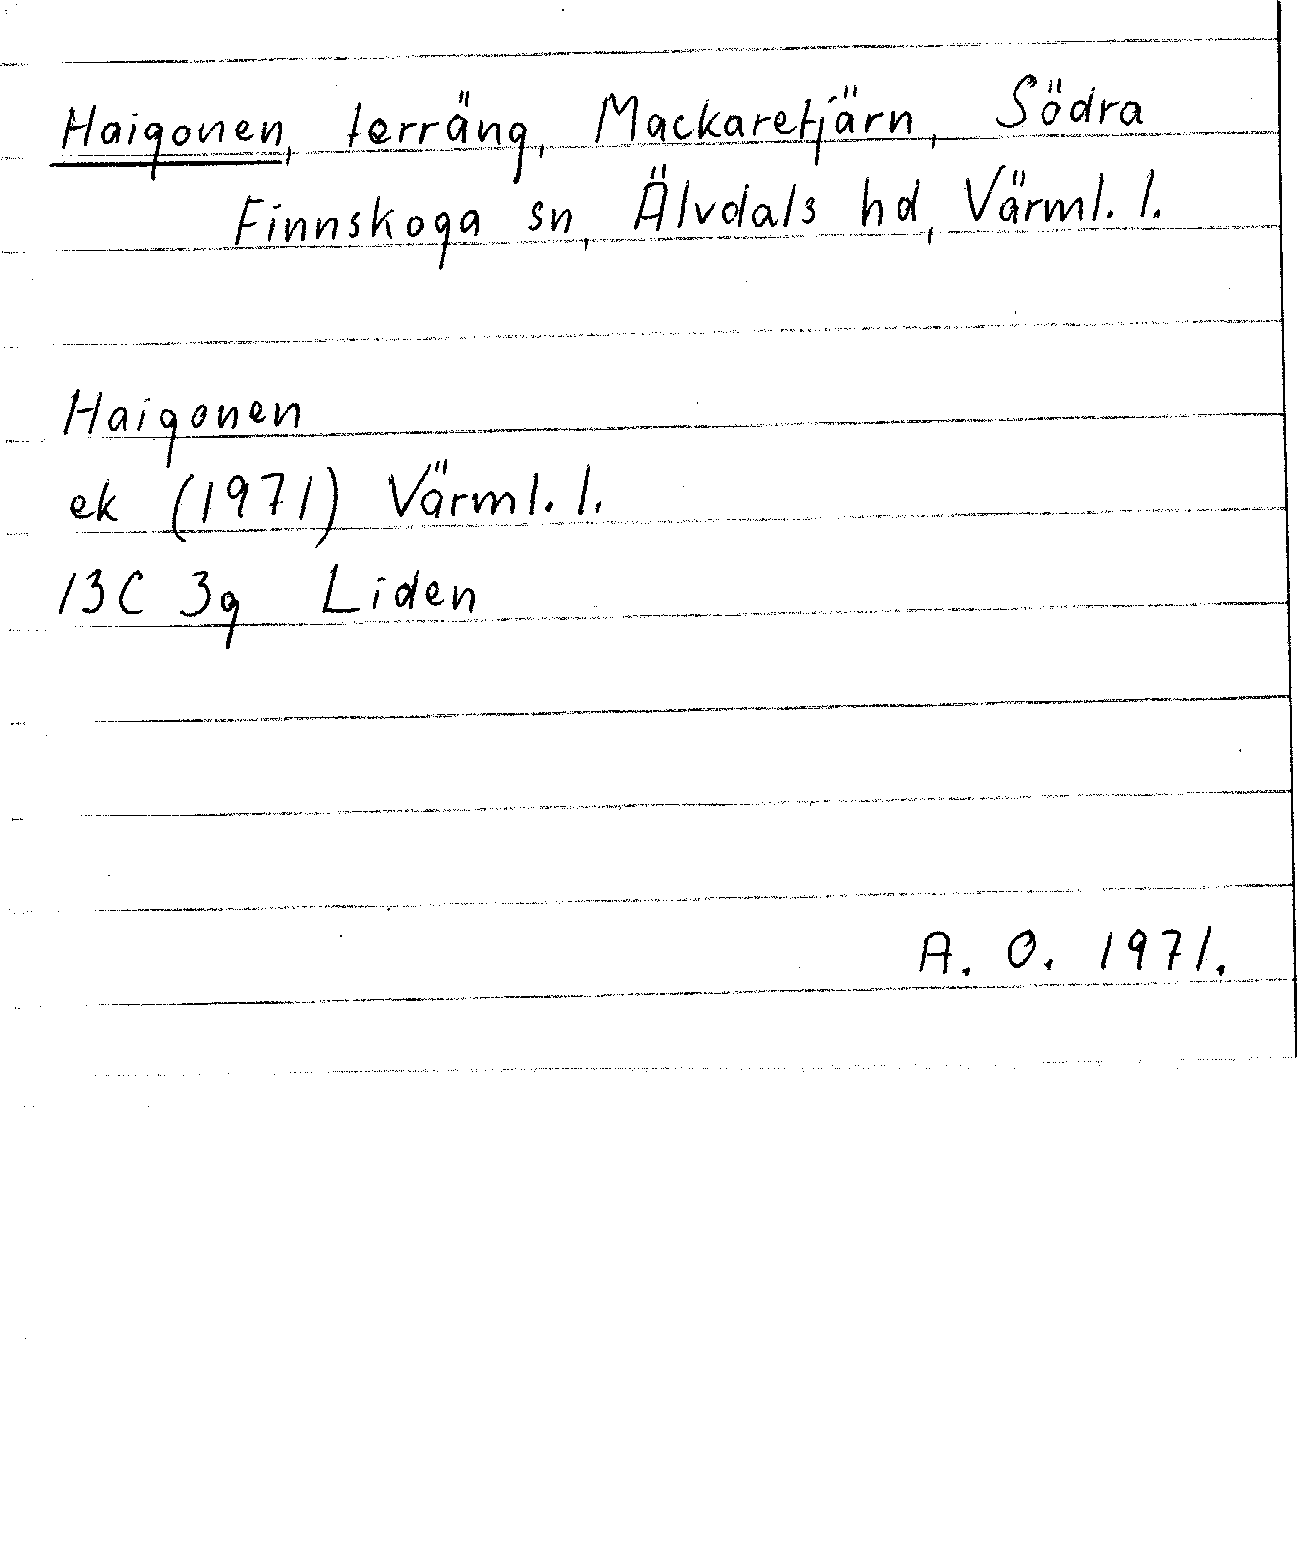 Haigonen, terräng, Mackaretjärn, Södra
Finnskoga sn, Älvdals hd, Värml. l.
Haigonen
ek (1971) Värml. l.
13C 3g Liden
A. O. 1971.